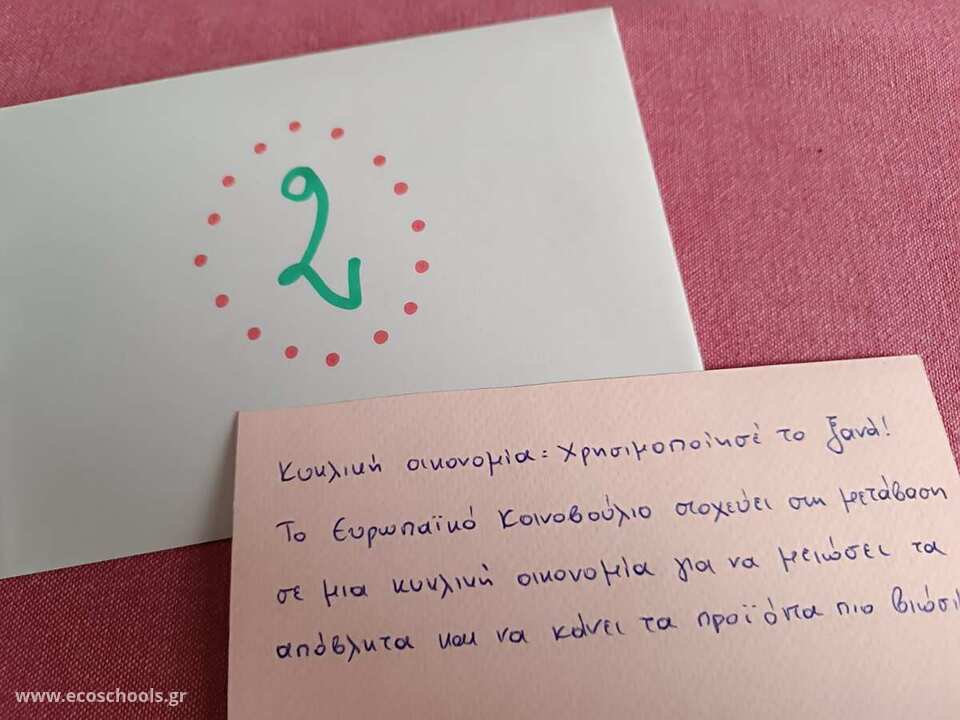 2
Κυκλική οικονομία: Χρησιμοποίησέ το ξανά!
Το Ευρωπαϊκό Κοινοβούλιο στοχεύει στη μετάβαση
σε μια κυκλική οικονομία για να μειώσει τα
απόβλητα και να κάνει τα προϊόντα πιο
www.ecoschools.gr